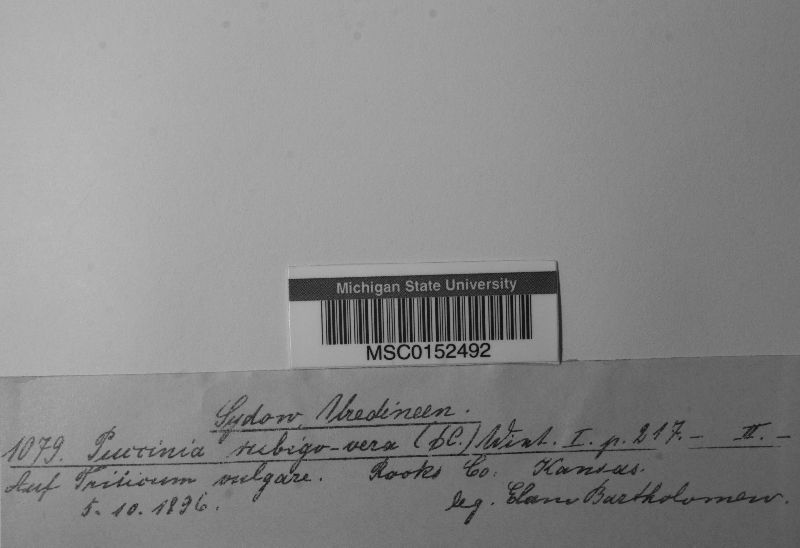 Michigan State University
MSC0152492
Sydow, Uredineen.
1079. Puccinia rubigo-vera (DC.) Wint. I. p. 217. — II. —
Auf Triticum vulgare. Rooks Co. Kansas.
5. 10. 1896. leg. Elam Bartholomew.